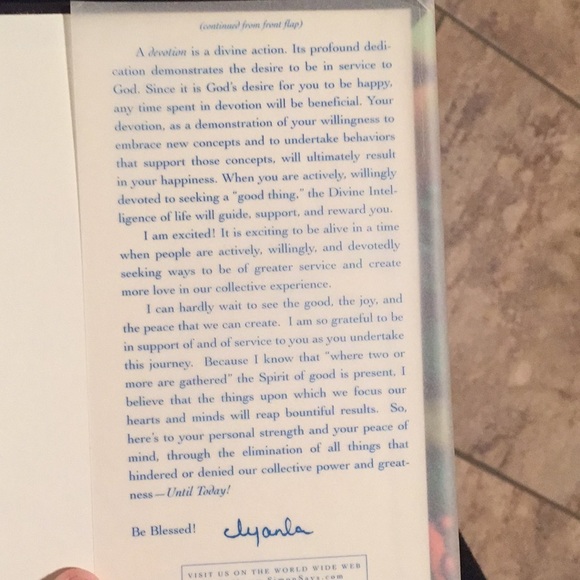 (continued from front flap)
A devotion is a divine action. Its profound dedi-
cation demonstrates the desire to be in service to
God. Since it is God's desire for you to be happy,
any time spent in devotion will be beneficial. Your
devotion, as a demonstration of your willingness to
embrace new concepts and to undertake behaviors
that support those concepts, will ultimately result
in your happiness. When you are actively, willingly
devoted to seeking a "good thing," the Divine Intel-
ligence of life will guide, support, and reward you.
I am excited! It is exciting to be alive in a time
when people are actively, willingly, and devotedly
seeking ways to be of greater service and create
more love in our collective experience.
I can hardly wait to see the good, the joy, and
the peace that we can create. I am so grateful to be
in support of and of service to you as you undertake
this journey. Because I know that "where two or
more are gathered" the Spirit of good is present, I
believe that the things upon which we focus our
hearts and minds will reap bountiful results. So,
here's to your personal strength and your peace of
mind, through the elimination of all things that
hindered or denied our collective power and great-
ness—Until Today!
Be Blessed! Iyanla
VISIT US ON THE WORLD WIDE WEB
SimonSays.com